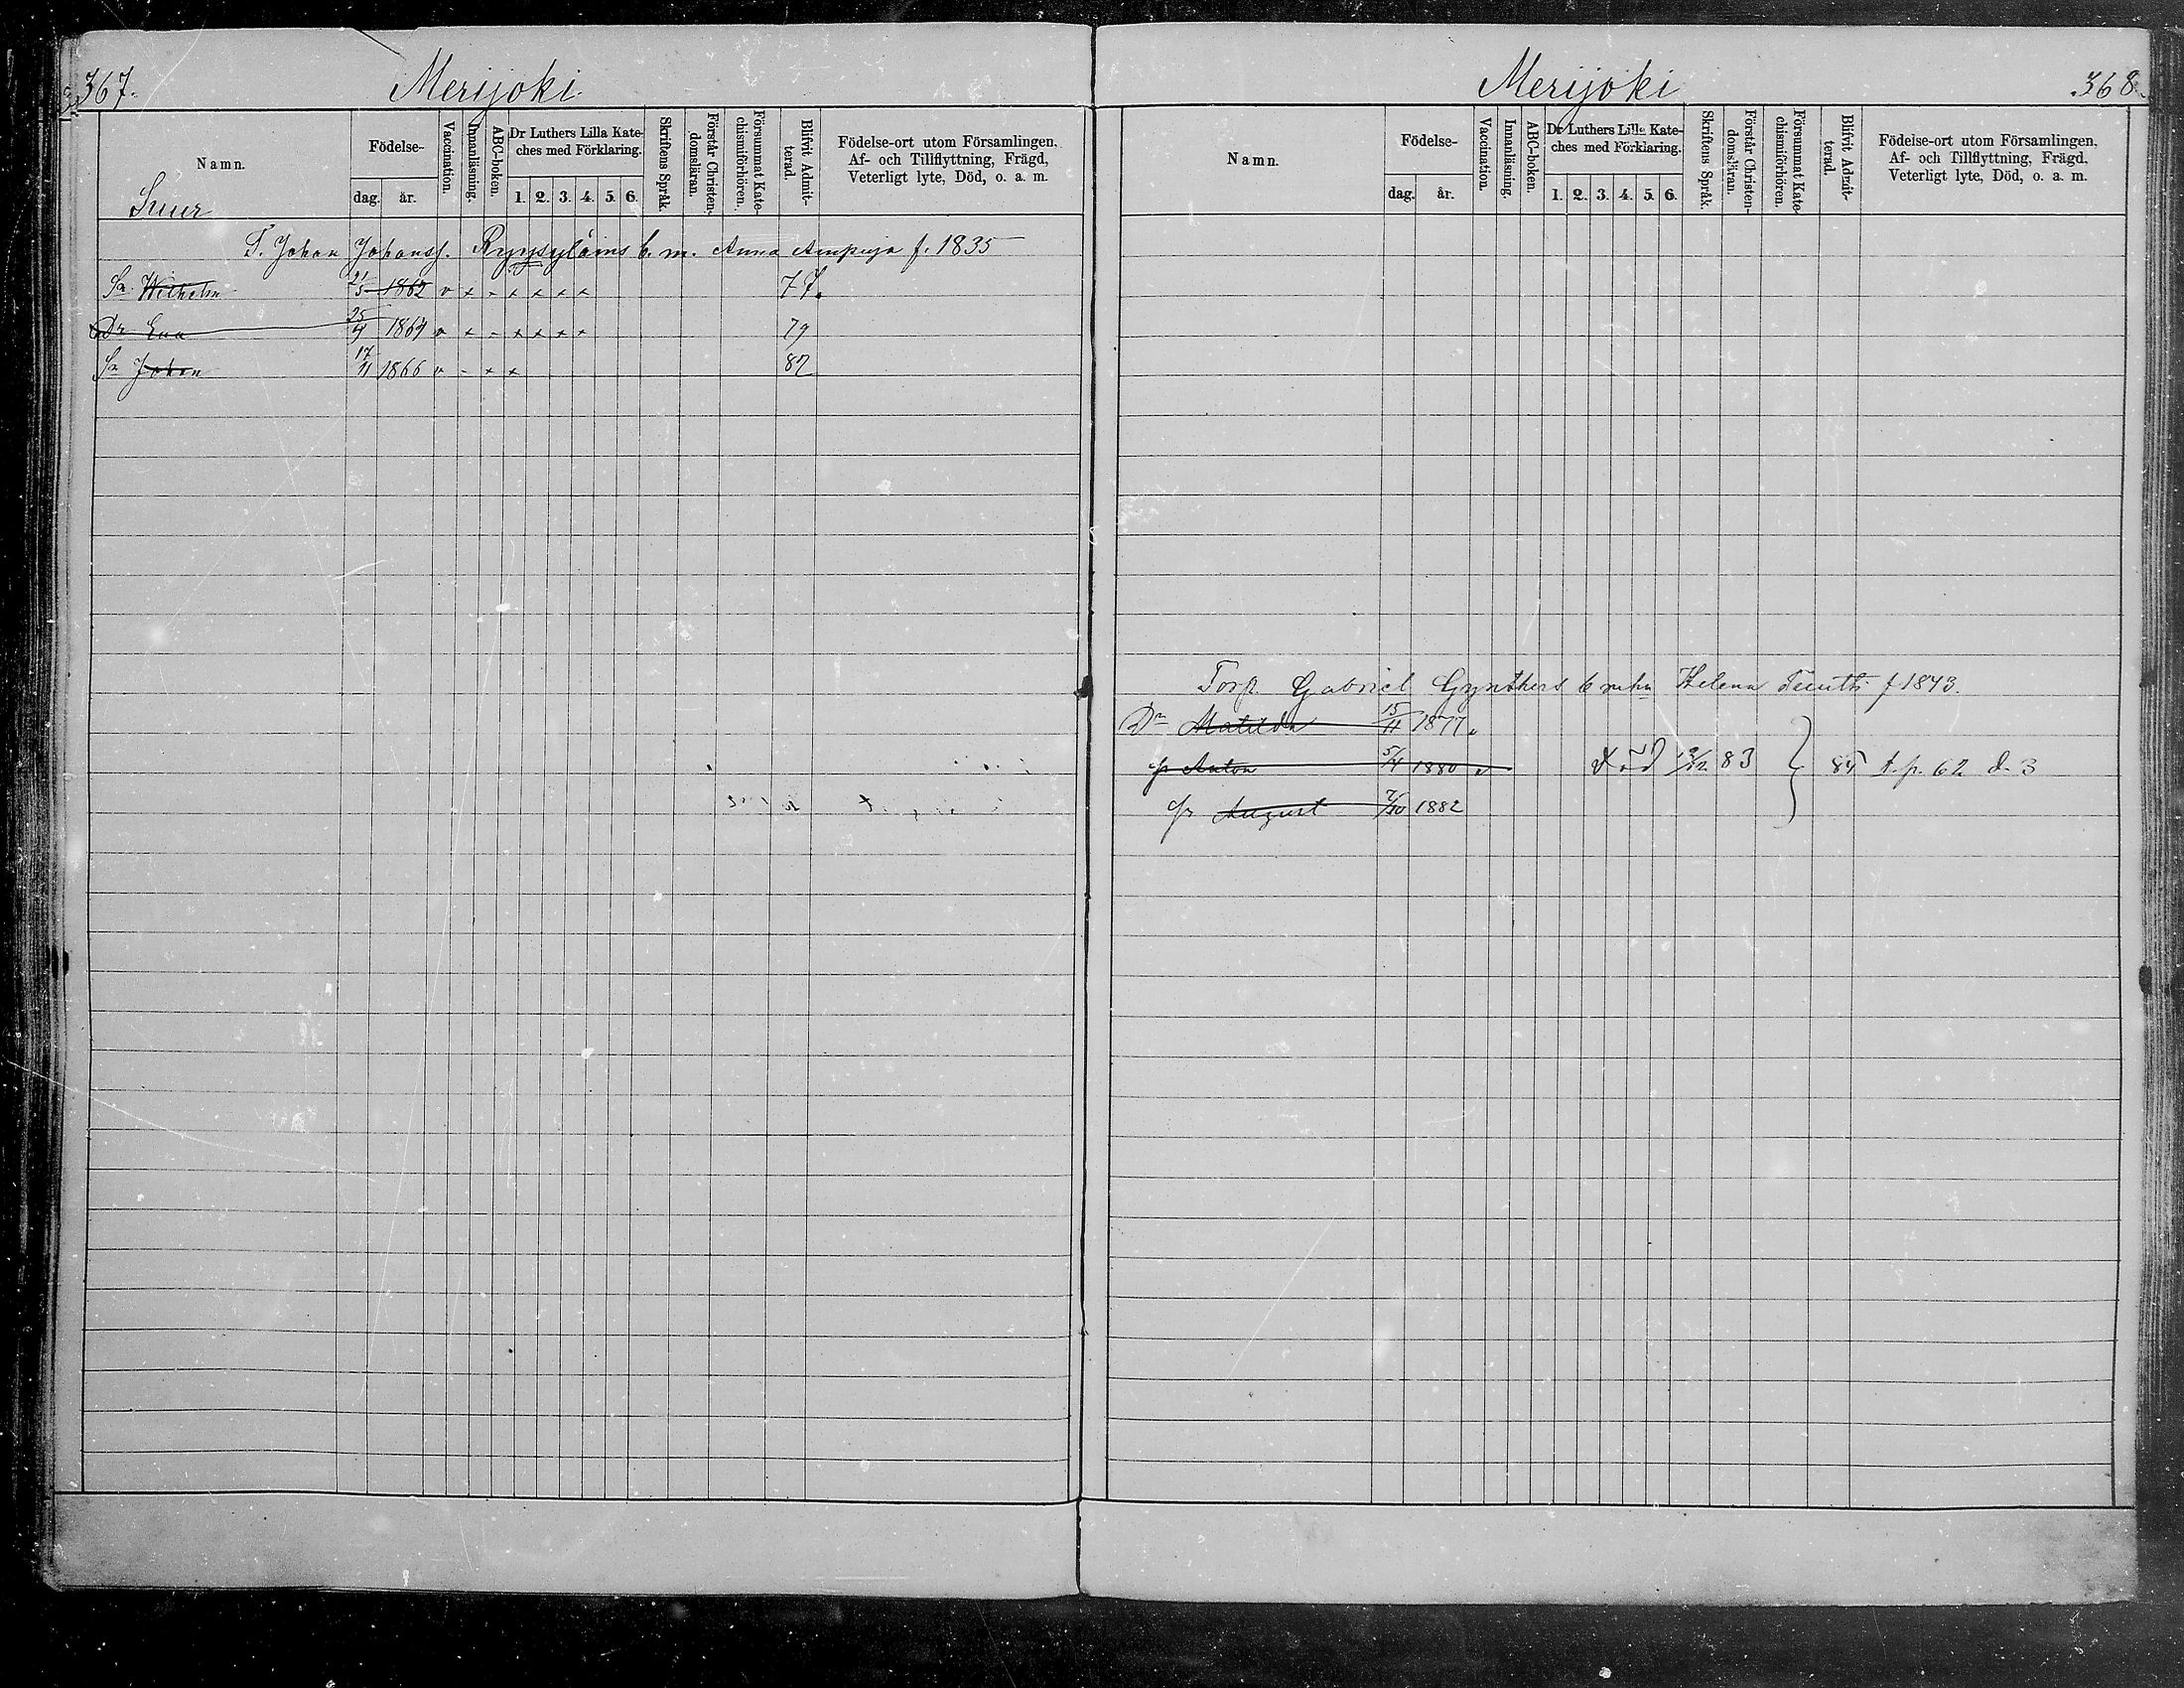 367. Merijoki
Namn. Födelse- dag. år. Vaccination. Innanläsning. ABC-boken. Dr Luthers Lilla Kate-ches med Förklaring. 1. 2. 3. 4. 5. 6. Skriftens Språk. Förstår Christen-domsläran. Försummat Kate-chismiförhören. Blifvit Admit-terad. Födelse-ort utom Församlingen, Af- och Tillflyttning, Frägd, Veterligt lyte, Död, o. a. m.
Suur
T. Johan Johanss. b. m. Anna Ampuja f. 1835
Sn Wilhelm 21/5 1862 v x - x x x x 77.
Dr Eva 25/4 1864 v x - x x x x 79
Sn Johan 17/11 1866 v - x x 82
Merijoki 368.
Namn. Födelse- dag. år. Vaccination. Innanläsning. ABC-boken. Dr Luthers Lilla Kate-ches med Förklaring. 1. 2. 3. 4. 5. 6. Skriftens Språk. Förstår Christen-domsläran. Försummat Kate-chismiförhören. Blifvit Admit-terad. Födelse-ort utom Församlingen, Af- och Tillflyttning, Frägd, Veterligt lyte, Död, o. a. m.
Torp. Gabriel Gynthers b Helena f 1843.
Dr Matilda 15/11 1877.
Anton 5/4 1880 v Död 83 84 t. p. 62 d. 3
August 7/10 1882